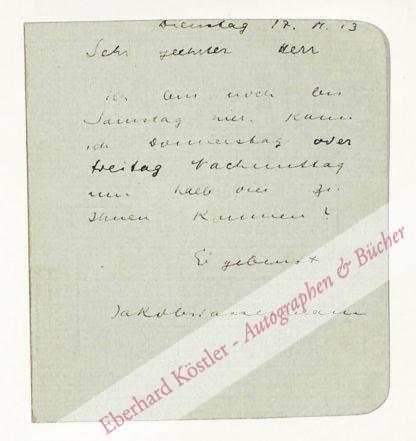 Dienstag 17. 11. 13
Sehr geehrter Herr
ich bin noch bis
Samstag hier. Kann
ich Donnerstag oder
Freitag Nachmittag
um halb vier zu
Ihnen kommen?
Ergebenst
Jakob Wassermann
Eberhard Köstler - Autographen & Bücher